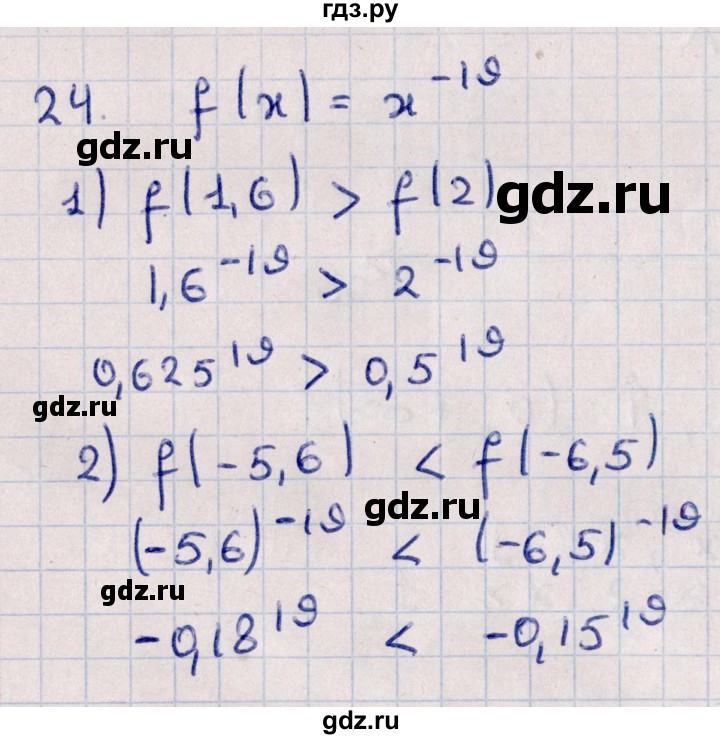 гдз.ру
24. f(x) = x^-19
gdz.ru
1) f(1,6) > f(2)
gdz.ru
1,6^-19 > 2^-19
0,625^19 > 0,5^19
gdz.ru
2) f(-5,6) < f(-6,5)
gdz.ru
(-5,6)^-19 < (-6,5)^-19
gdz.ru
-0,18^19 < -0,15^19
gdz.ru